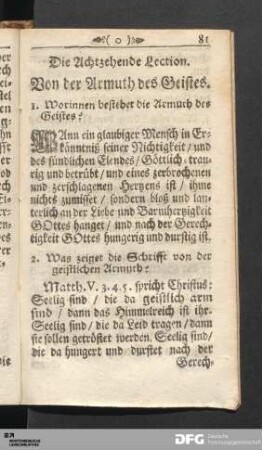 ( o ) 81
Die Achtzehende Lection.
Von der Armuth des Geistes.
1. Worinnen bestehet die Armuth des
Geistes?
WAnn ein glaubiger Mensch in Er-
känntniß seiner Nichtigkeit / und
des sündlichen Elendes / Göttlich, trau-
rig und betrübt / und eines zerbrochenen
und zerschlagenen Hertzens ist / ihme
nichts zumisset / sondern bloß und lau-
terlich an der Liebe und Barmhertzigkeit
GOttes hanget / und nach der Gerech-
tigkeit GOttes hungerig und durstig ist.
2. Was zeiget die Schrifft von der
geistlichen Armuth?
Matth. V. 3. 4. 5. spricht Christus:
Seelig sind / die da geistlich arm
sind / dann das Himmelreich ist ihr.
Seelig sind / die da Leid tragen / dann
sie sollen getröstet werden. Seelig sind /
die da hungert und dürstet nach der
Gerech-
DFG Deutsche
Forschungsgemeinschaft